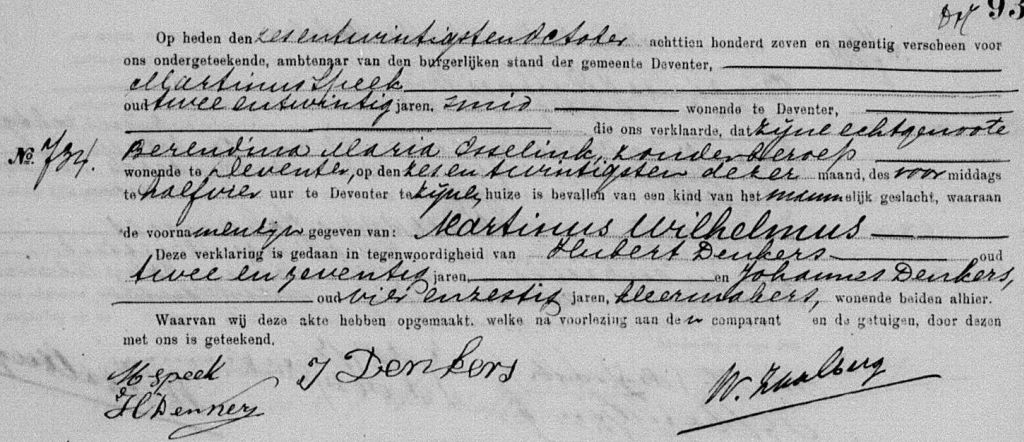 93
Op heden den zesentwintigsten October achttien honderd zeven en negentig verscheen voor
ons ondergeteekende, ambtenaar van den burgerlijken stand der gemeente Deventer,
Martinus Speek
oud twee entwintig jaren, smid wonende te Deventer,
die ons verklaarde, dat zijne echtgenoote
No. 734. Berendina Maria Esselink, zonder beroep
wonende te Deventer, op den zes en twintigsten dezer maand, des voor middags
te halfvier uur te Deventer te zijnen huize is bevallen van een kind van het mannelijk geslacht, waaraan
de voornamen zijn gegeven van: Martinus Wilhelmus
Deze verklaring is gedaan in tegenwoordigheid van Hubert Denkers oud
twee en zeventig jaren, en Johannes Denkers,
oud vier enzestig jaren, kleermakers, wonende beiden alhier.
Waarvan wij deze akte hebben opgemaakt. welke na voorlezing aan den comparant en de getuigen, door dezen
met ons is geteekend.
M Speek J Denkers
W. Zaalberg